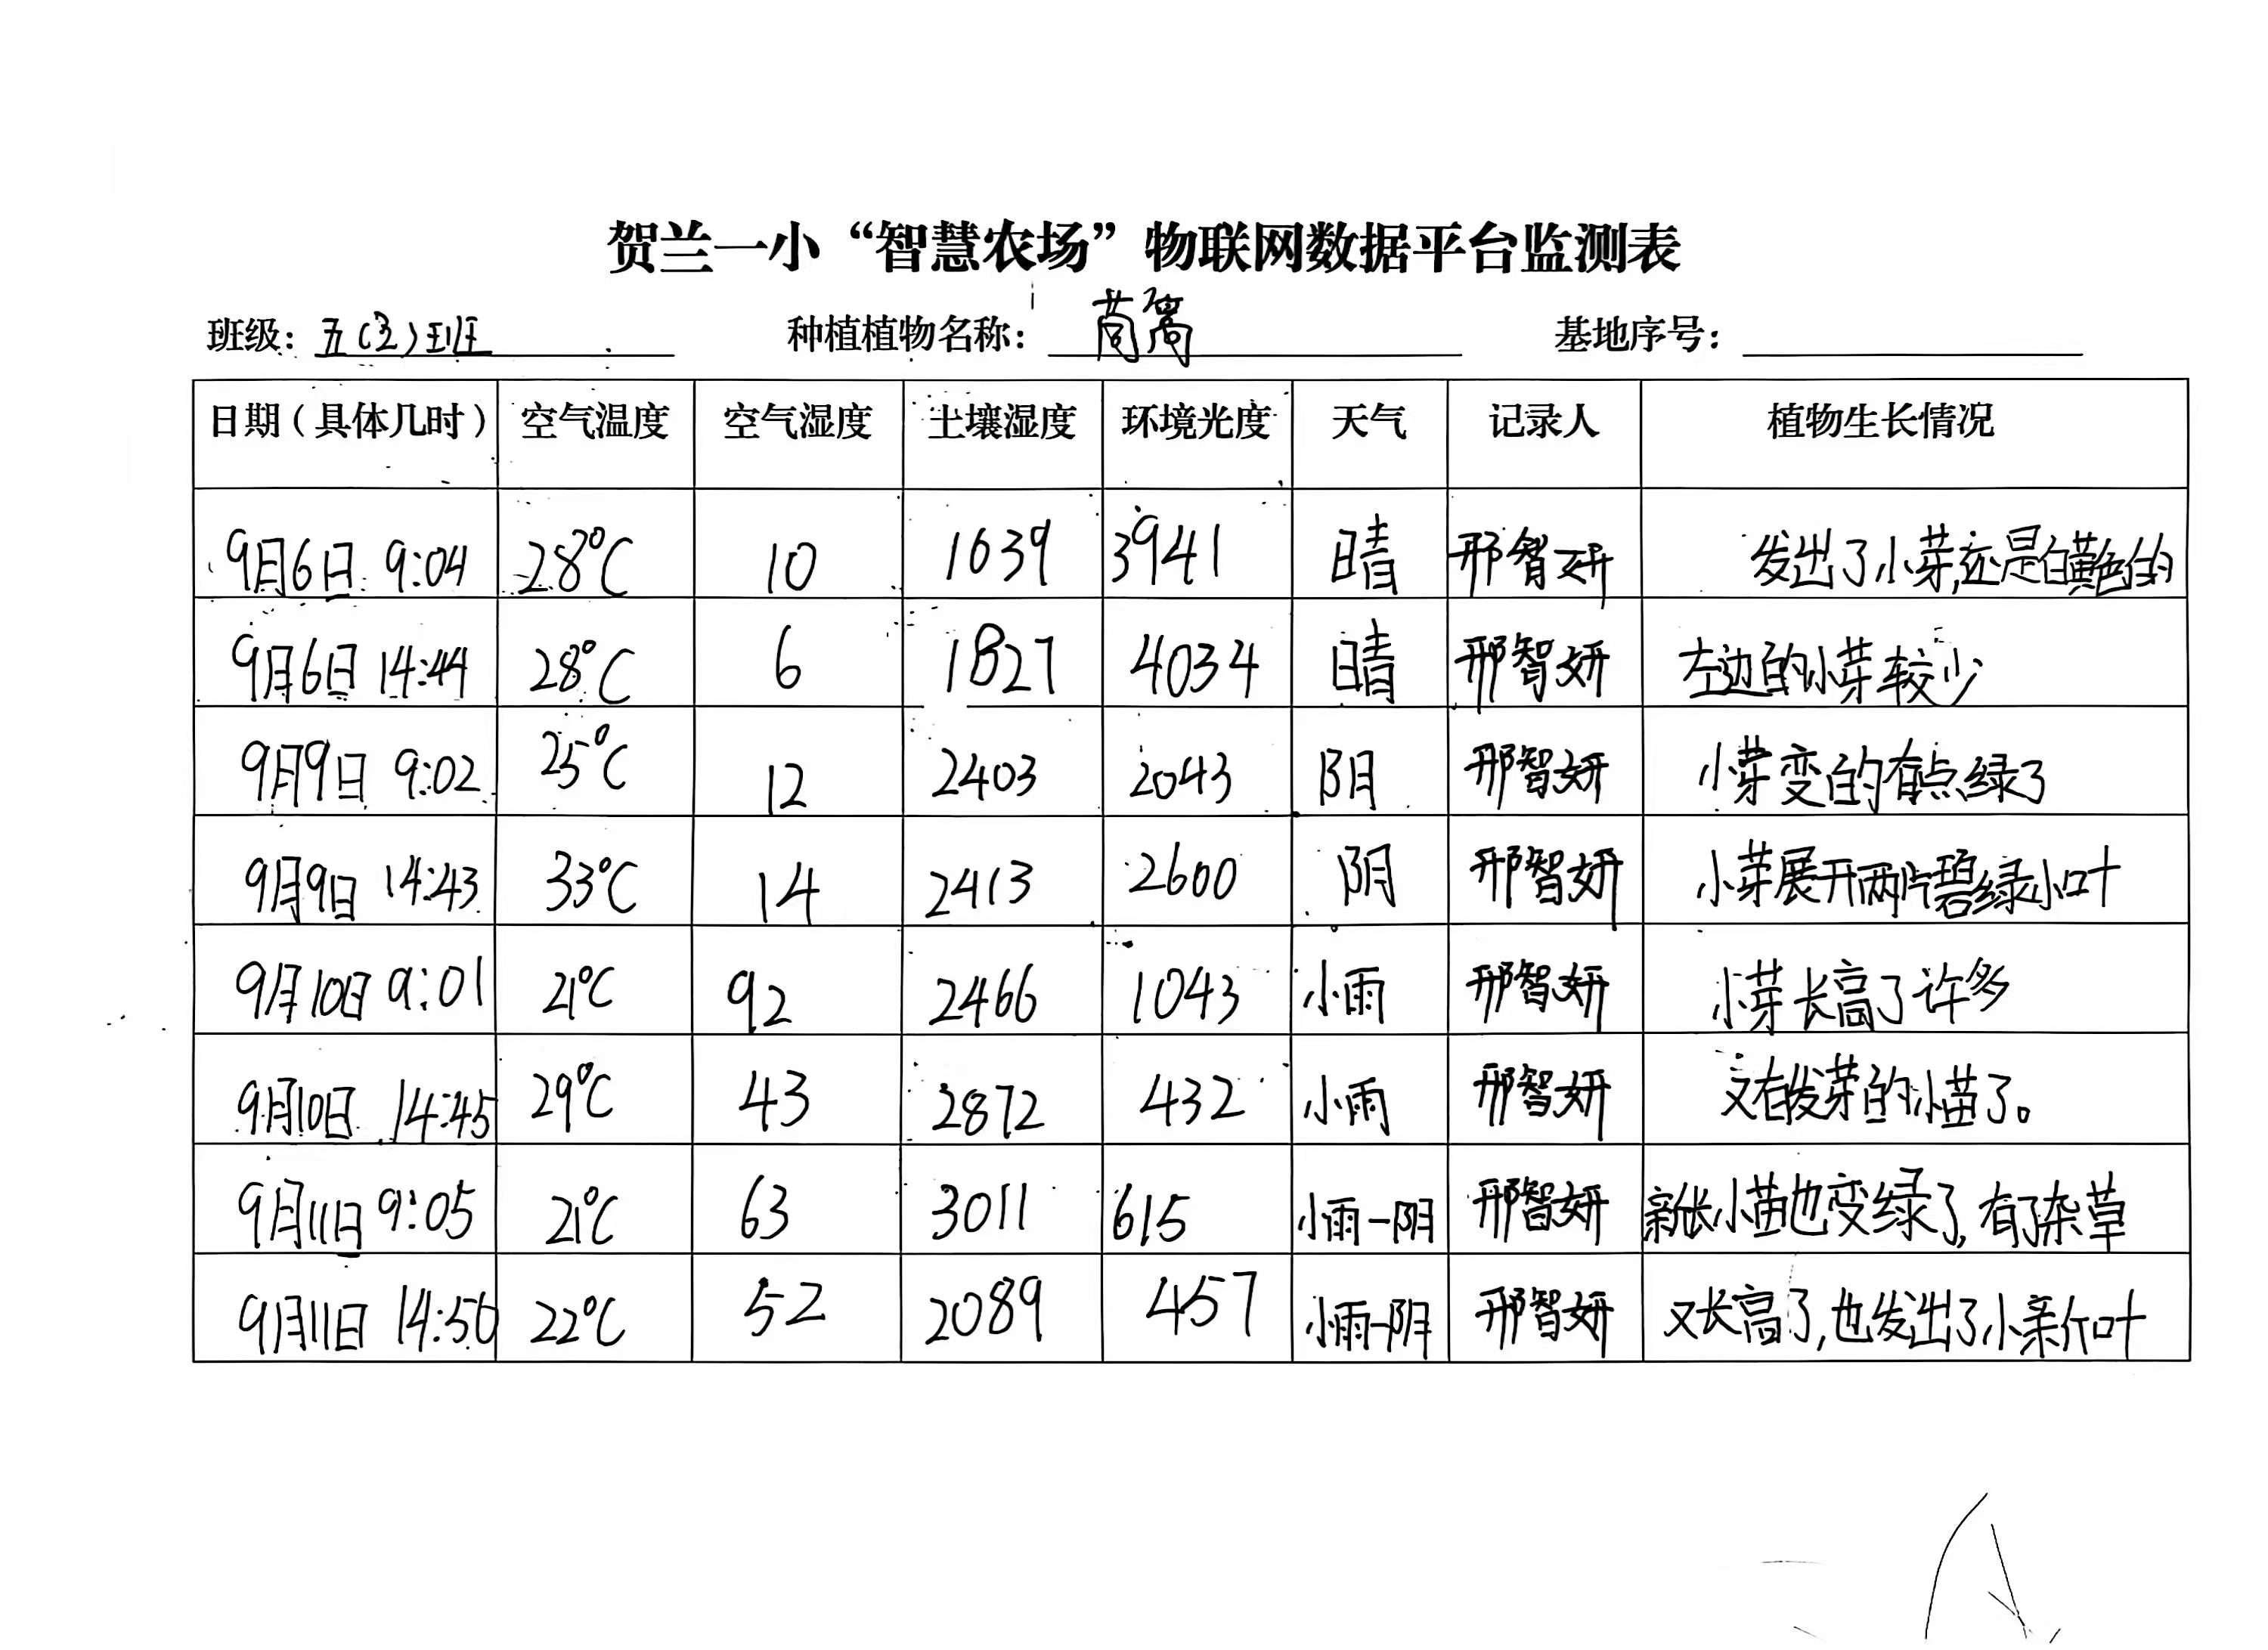 贺兰一小“智慧农场”物联网数据平台监测表
班级：五（3）班 种植植物名称：茼蒿 基地序号：
日期（具体几时） 空气温度 空气湿度 土壤湿度 环境光度 天气 记录人 植物生长情况
9月6日 9:04 28°C 10 1639 3941 晴 邢智妍 发出了小芽,还是白黄色的
9月6日 14:44 28°C 6 1827 4034 晴 邢智妍 左边的小芽较少
9月9日 9:02 25°C 12 2403 2043 阴 邢智妍 小芽变的有点绿了
9月9日 14:43 33°C 14 2413 2600 阴 邢智妍 小芽展开两片碧绿小叶
9月10日 9:01 21°C 92 2466 1043 小雨 邢智妍 小芽长高了许多
9月10日 14:45 29°C 43 2872 432 小雨 邢智妍 又有发芽的小苗了。
9月11日 9:05 21°C 63 3011 615 小雨-阴 邢智妍 新长小苗也变绿了,有了杂草
9月11日 14:50 22°C 52 2089 457 小雨-阴 邢智妍 又长高了,也发出了小新叶